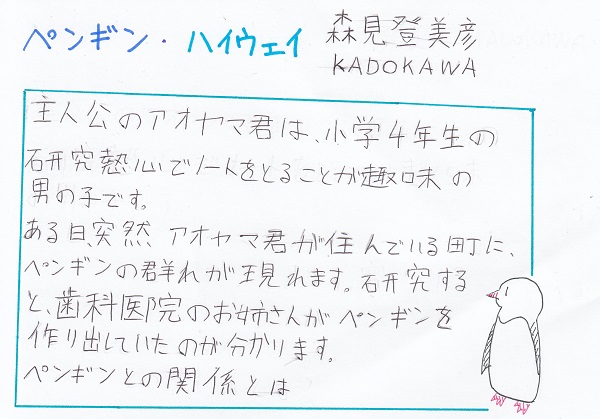 ペンギン・ハイウェイ 森見登美彦
KADOKAWA
主人公のアオヤマ君は、小学4年生の
研究熱心でノートをとることが趣味の
男の子です。
ある日、突然 アオヤマ君が住んでいる町に、
ペンギンの群れが現れます。研究する
と、歯科医院のお姉さんがペンギンを
作り出していたのが分かります。
ペンギンとの関係とは